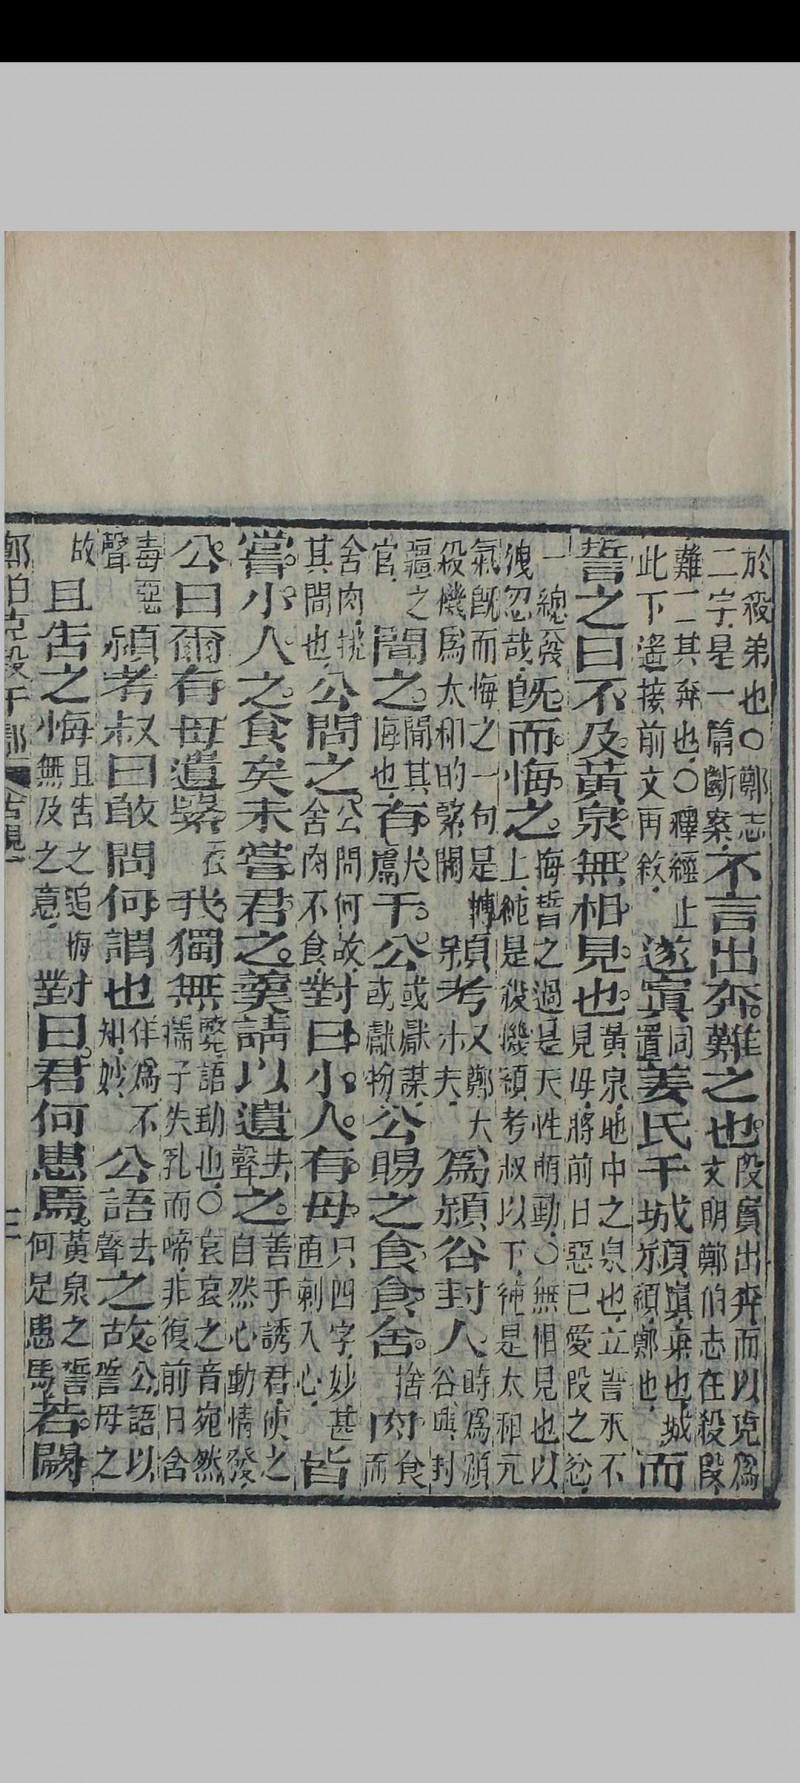 於殺弟也○鄭志二字是一篇斷案不言出奔難之也段實出奔而以克爲文明鄭伯志在殺段
難言其奔也○釋經止此下遙接前文再敘遂寘置同姜氏于城潁寘棄也城潁鄭地而
誓之曰不及黃泉無相見也黃泉地中之泉也立誓永不見母將前日惡己愛段之忿
一總發洩忍哉既而悔之悔誓之過是天性萌動○無相見也以上純是殺機潁考叔以下純是太和元
氣既而悔之一句是轉殺機爲太和的緊關潁考叔鄭大夫爲潁谷封人時爲潁谷典封
疆之官聞之聞其悔也有獻于公或獻謀或獻物公賜之食食舍捨肉食而
舍肉挑其問也公問之公問何故舍肉不食對曰小人有母只四字妙甚直刺入心皆
嘗小人之食矣未嘗君之羹請以遺去聲之善于誘君使之自然心動情發
公曰爾有母遺繄衣我獨無繄語助也○哀哀之音宛然孺子失乳而啼非復前日含
毒惡聲潁考叔曰敢問何謂也佯爲不知妙公語去聲之故公語以古誓母之
故且告之悔且告之追悔無及之意對曰君何患焉黃泉之誓何足患焉若闕
鄭伯克段于鄢 古觀一 三